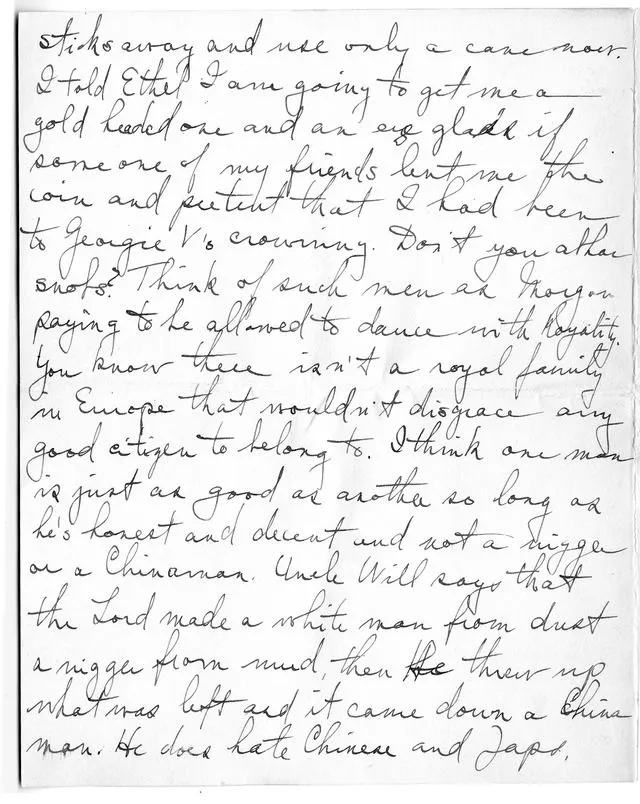 sticks away and use only a cane now.
I told Ethel I am going to get me a
gold headed one and an eye glass if
some one of my friends lent me the
coin and pretent that I had been
to Georgie V's crowning. Don't you abhor
snobs? Think of such men as Morgan
paying to be allowed to dance with Royality.
You know there isn't a royal family
in Europe that wouldn't disgrace any
good citizen to belong to. I think one man
is just as good as another so long as
he's honest and decent and not a nigger
or a Chinaman. Uncle Will says that
the Lord made a white man from dust
a nigger from mud, then He threw up
what was left and it came down a China
man. He does hate Chinese and Japs.